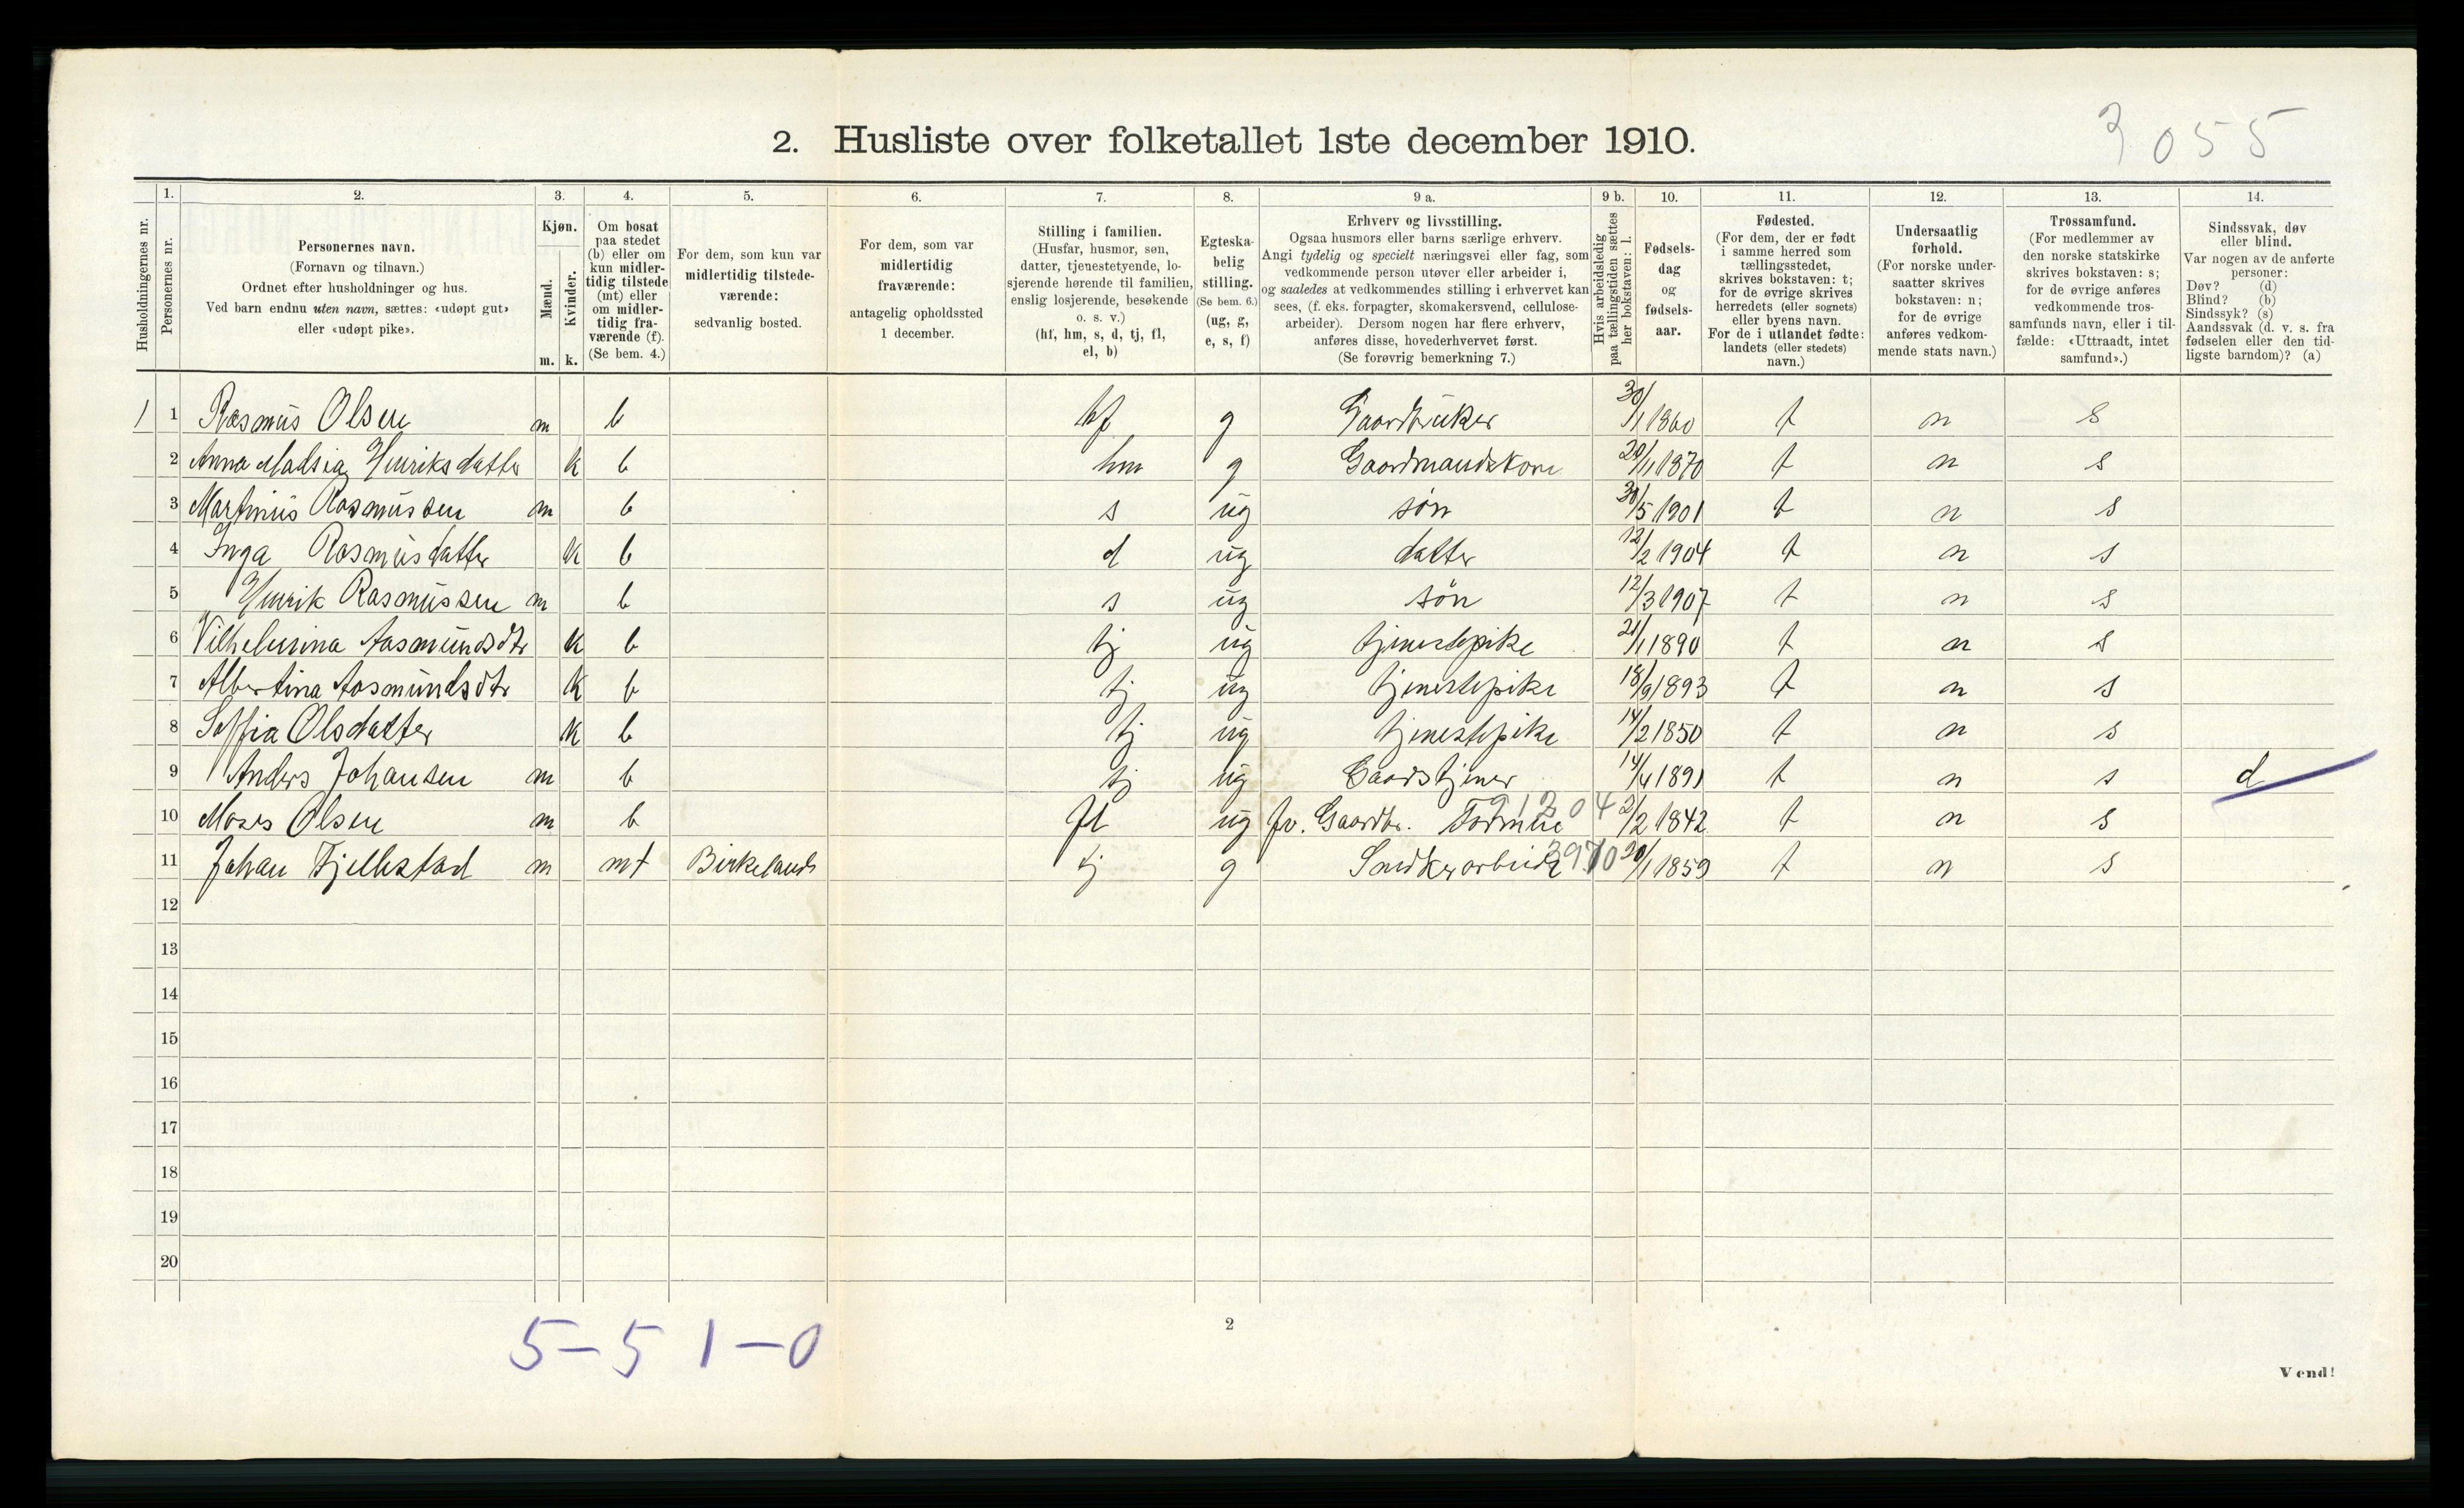 3055
2. Husliste over folketallet 1ste december 1910.
Husholdningernes nr.
1. Personernes nr.
2. Personernes navn. (Fornavn og tilnavn.) Ordnet efter husholdninger og hus. Ved barn endnu uten navn, sættes: «udøpt gut» eller «udøpt pike».
3. Kjøn. Mænd. m. Kvinder. k.
4. Om bosat paa stedet (b) eller om kun midlertidig tilstede (mt) eller om midlertidig fraværende (f). (Se bem. 4.)
5. For dem, som kun var midlertidig tilstedeværende: sedvanlig bosted.
6. For dem, som var midlertidig fraværende: antagelig opholdssted 1 december.
7. Stilling i familien. (Husfar, husmor, søn, datter, tjenestetyende, losjerende hørende til familien, enslig losjerende, besøkende o. s. v.) (hf, hm, s, d, tj, fl, el, b)
8. Egteskabelig stilling. (Se bem. 6.) (ug, g, e, s, f)
9 a. Erhverv og livsstilling. Ogsaa husmors eller barns særlige erhverv. Angi tydelig og specielt næringsvei eller fag, som vedkommende person utøver eller arbeider i, og saaledes at vedkommendes stilling i erhvervet kan sees, (f. eks. forpagter, skomakersvend, cellulosearbeider). Dersom nogen har flere erhverv, anføres disse, hovederhvervet først. (Se forøvrig bemerkning 7.)
9 b. Hvis arbeidsledig paa tællingstiden sættes her bokstaven: l.
10. Fødselsdag og fødselsaar.
11. Fødested. (For dem, der er født i samme herred som tællingsstedet, skrives bokstaven: t; for de øvrige skrives herredets (eller sognets) eller byens navn. For de i utlandet fødte: landets (eller stedets) navn.)
12. Undersaatlig forhold. (For norske undersaatter skrives bokstaven: n; for de øvrige anføres vedkommende stats navn.)
13. Trossamfund. (For medlemmer av den norske statskirke skrives bokstaven: s; for de øvrige anføres vedkommende trossamfunds navn, eller i tilfælde: «Uttraadt, intet samfund».)
14. Sindssvak, døv eller blind. Var nogen av de anførte personer: Døv? (d) Blind? (b) Sindssyk? (s) Aandssvak (d. v. s. fra fødselen eller den tidligste barndom)? (a)
1 1 Rasmus Olsen m b hf g Gaardbruker 30/1 1860 t n s
2 Anna Malsia Henriksdatter k b hm g Gaardmandskone 20/11 1870 t n s
3 Martinus Rasmussen m b s ug søn 30/5 1901 t n s
4 Inga Rasmusdatter k b d ug datter 12/2 1904 t n s
5 Henrik Rasmussen m b s ug søn 12/3 1907 t n s
6 Vilhelmina Aasmundsdtr k b tj ug tjenestepike 21/1 1890 t n s
7 Albertina Aasmundsdtr k b tj ug tjenestepike 18/9 1893 t n s
8 Soffia Olsdatter k b tj ug tjenestepike 14/2 1850 t n s
9 Anders Johansen m b tj ug Gaardstjener 14/4 1891 t n s d
10 Moses Olsen m b fl ug fv. Gaardbr. 2/2 1842 t n s
11 Johan Fjellestad m mt Birkeland tj g Snedkerarbeide 3970 20/1 1859 t n s
12
13
14
15
16
17
18
19
20
5-5 1-0
2
Vend!